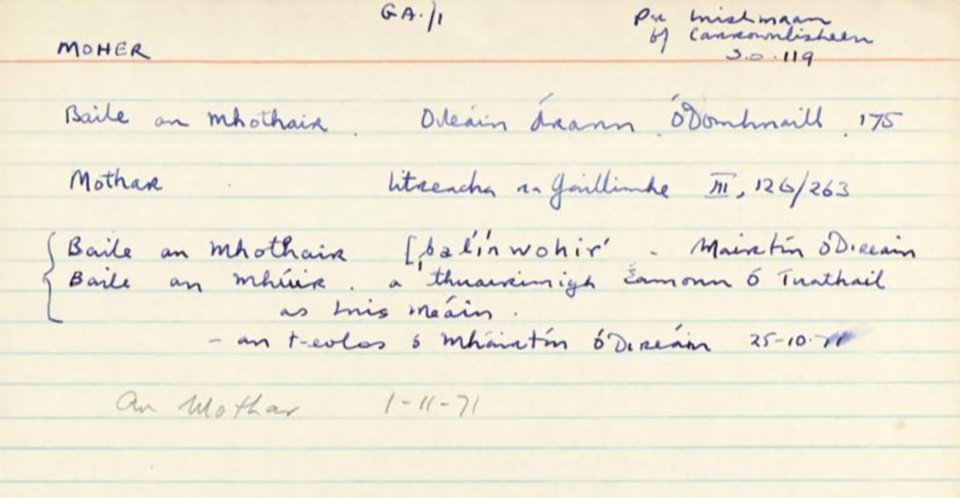 GA./1
Par Inishmaan
bf Carrownlisheen
S.O. 119
MOHER
Baile an Mhothair. Oileáin Árann. Ó Domhnaill. 175
Mothar Litreacha na Gaillimhe III, 126/263
Baile an Mhothair [ˌbalʹiːn wohirʹ - Máirtín Ó Direáin
Baile an Mhúir. a thuairimigh Éamonn Ó Tuathail
as Inis Meáin.
- an t-eolas ó Mháirtín Ó Direáin 25-10-71
An Mothar 1-11-71